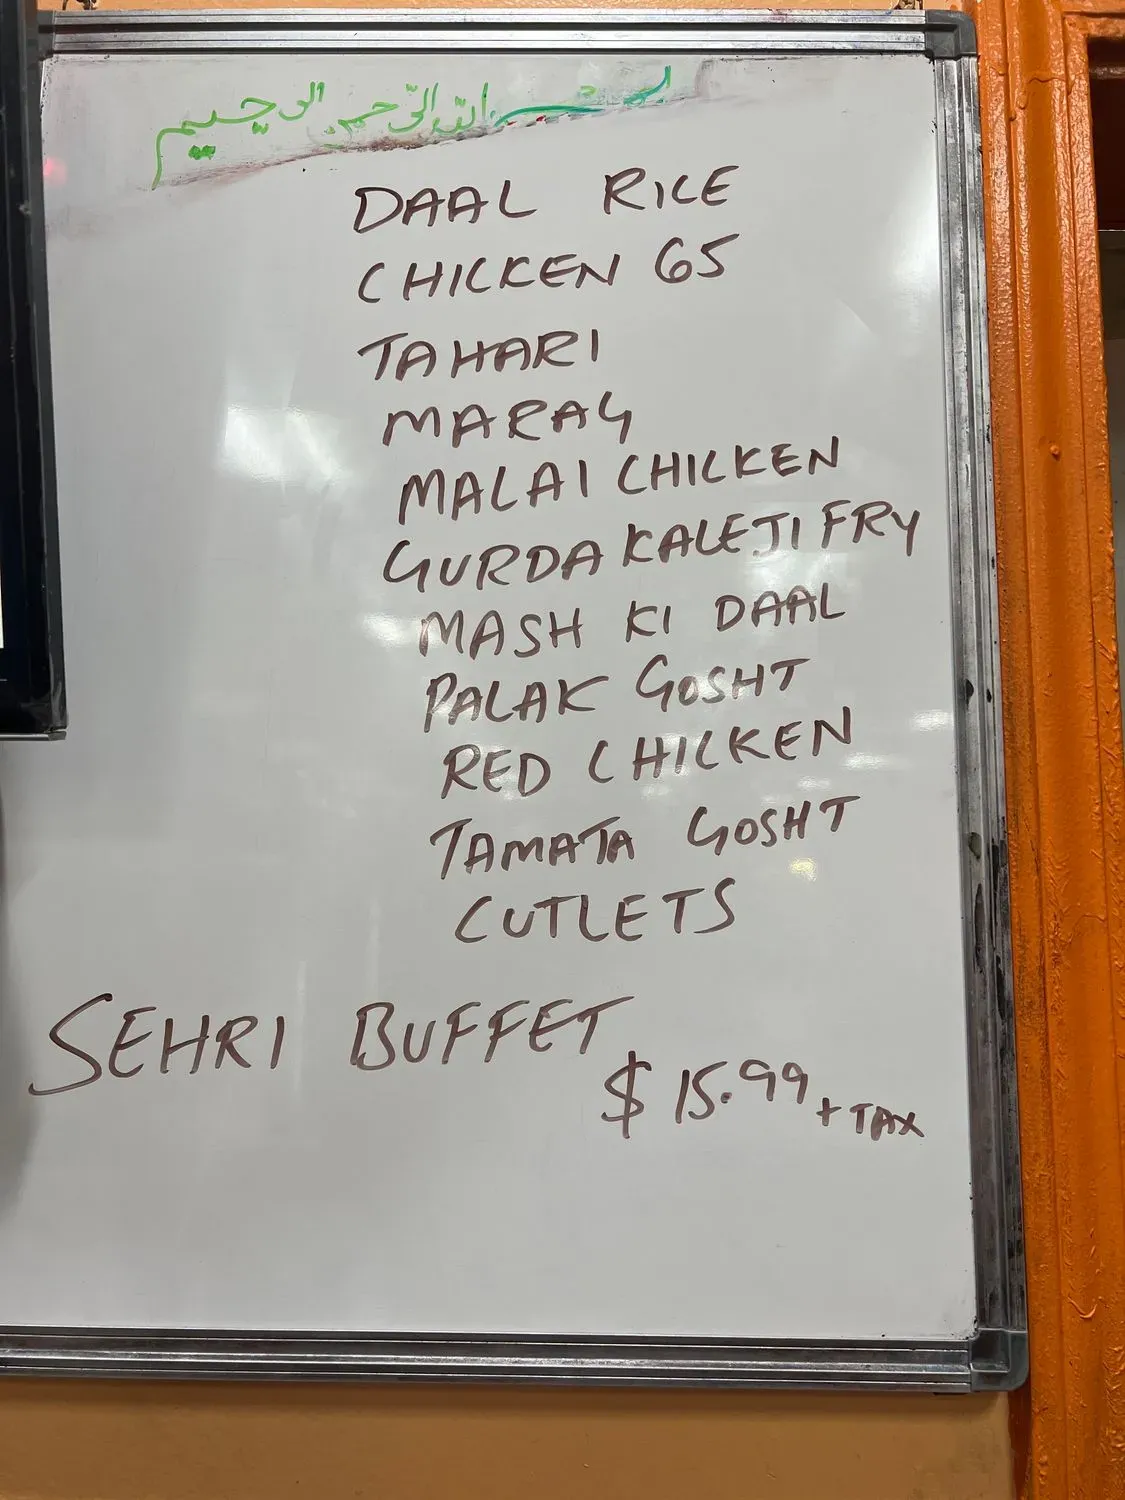 بسم الله الرحمن الرحيم
DAAL RICE
CHICKEN 65
TAHARI
MARAG
MALAI CHICKEN
GURDA KALEJI FRY
MASH KI DAAL
PALAK GOSHT
RED CHICKEN
TAMATA GOSHT
CUTLETS
SEHRI BUFFET
$ 15.99 + TAX